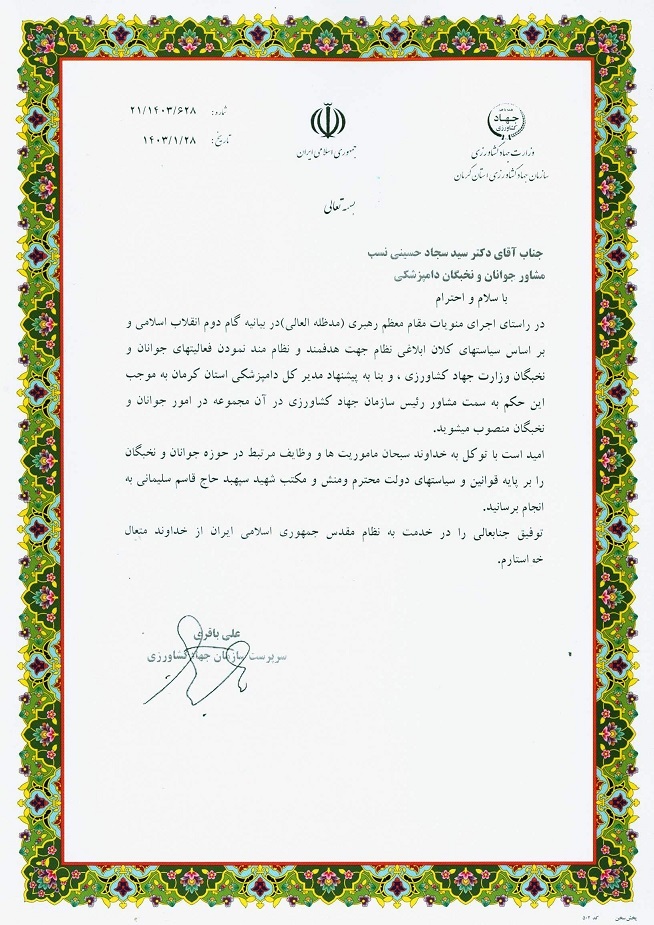 شماره: ۲۱/۱۴۰۳/۶۲۸
تاریخ: ۱۴۰۳/۱/۲۸
جمهوری اسلامی ایران
جهاد
کشاورزی
وزارت جهاد کشاورزی
سازمان جهاد کشاورزی استان کرمان
بسمه تعالی
جناب آقای دکتر سید سجاد حسینی نسب
مشاور جوانان و نخبگان دامپزشکی
با سلام و احترام
در راستای اجرای منویات مقام معظم رهبری (مدظله العالی)در بیانیه گام دوم انقلاب اسلامی و
بر اساس سیاستهای کلان ابلاغی نظام جهت هدفمند و نظام مند نمودن فعالیتهای جوانان و
نخبگان وزارت جهاد کشاورزی ، و بنا به پیشنهاد مدیر کل دامپزشکی استان کرمان به موجب
این حکم به سمت مشاور رئیس سازمان جهاد کشاورزی در آن مجموعه در امور جوانان و
نخبگان منصوب میشوید.
امید است با توکل به خداوند سبحان ماموریت ها و وظایف مرتبط در حوزه جوانان و نخبگان
را بر پایه قوانین و سیاستهای دولت محترم ومنش و مکتب شهید سپهبد حاج قاسم سلیمانی به
انجام برسانید.
توفیق جنابعالی را در خدمت به نظام مقدس جمهوری اسلامی ایران از خداوند متعال
خواستارم.
علی باقری
سرپرست سازمان جهاد کشاورزی
پخش سخن کد ۵۰۲